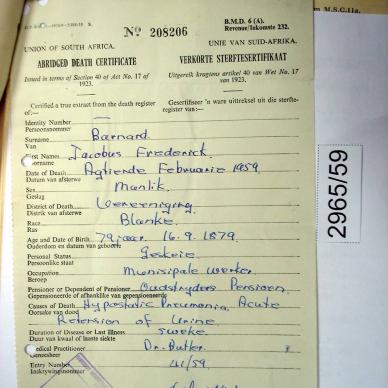 B.M.D. 6 (A).
Revenue/Inkomste 232.
Nº 208206
UNION OF SOUTH AFRICA.
UNIE VAN SUID-AFRIKA.
ABRIDGED DEATH CERTIFICATE
VERKORTE STERFTESERTIFIKAAT
Issued in terms of Section 40 of Act No. 17 of 1923.
Uitgereik kragtens artikel 40 van Wet No. 17 van 1923.
Certified a true extract from the death register of:—
Gesertifiseer 'n ware uittreksel uit die sterfteregister van:—
Identity Number
Persoonsnommer
Surname Barnard.
Van
First Names Jacobus Frederick.
Voorname
Date of Death Agtiende Februarie 1959.
Datum van afsterwe
Sex Manlik.
Geslag
District of Death Vereeniging
Distrik van afsterwe
Race Blanke.
Ras
Age and Date of Birth 79 jaar. 16.9.1879.
Ouderdom en datum van geboorte
Personal Status Geskeie.
Persoonlike staat
Occupation Munisipale werker.
Beroep
Pensioner or Dependent of Pensioner Oudstryders Pensioen.
Gepensioeneerde of afhanklike van gepensioeneerde
Causes of Death Hypostatic Pneumonia. Acute
Oorsake van dood Retension of Urine
Duration of Disease or Last Illness 3 weke.
Duur van kwaal of laaste siekte
Medical Practitioner Dr. Butler.
Geneesheer
Entry Number 41/59.
Inskrywingsnommer
2965/59